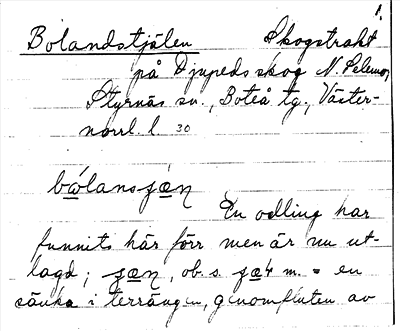 1.
Bolandstjälen Skogstrakt
på Djupeds skog N.
Styrnäs sn., Boteå tg., Väster-
norrl. l. 30
bɷ́lansʃæ̀n
En odling har
funnits här förr men är nu ut-
lagd; ʃæn, ob. s. ʃæ4 m. = en
sänka i terrängen, genomfluten av